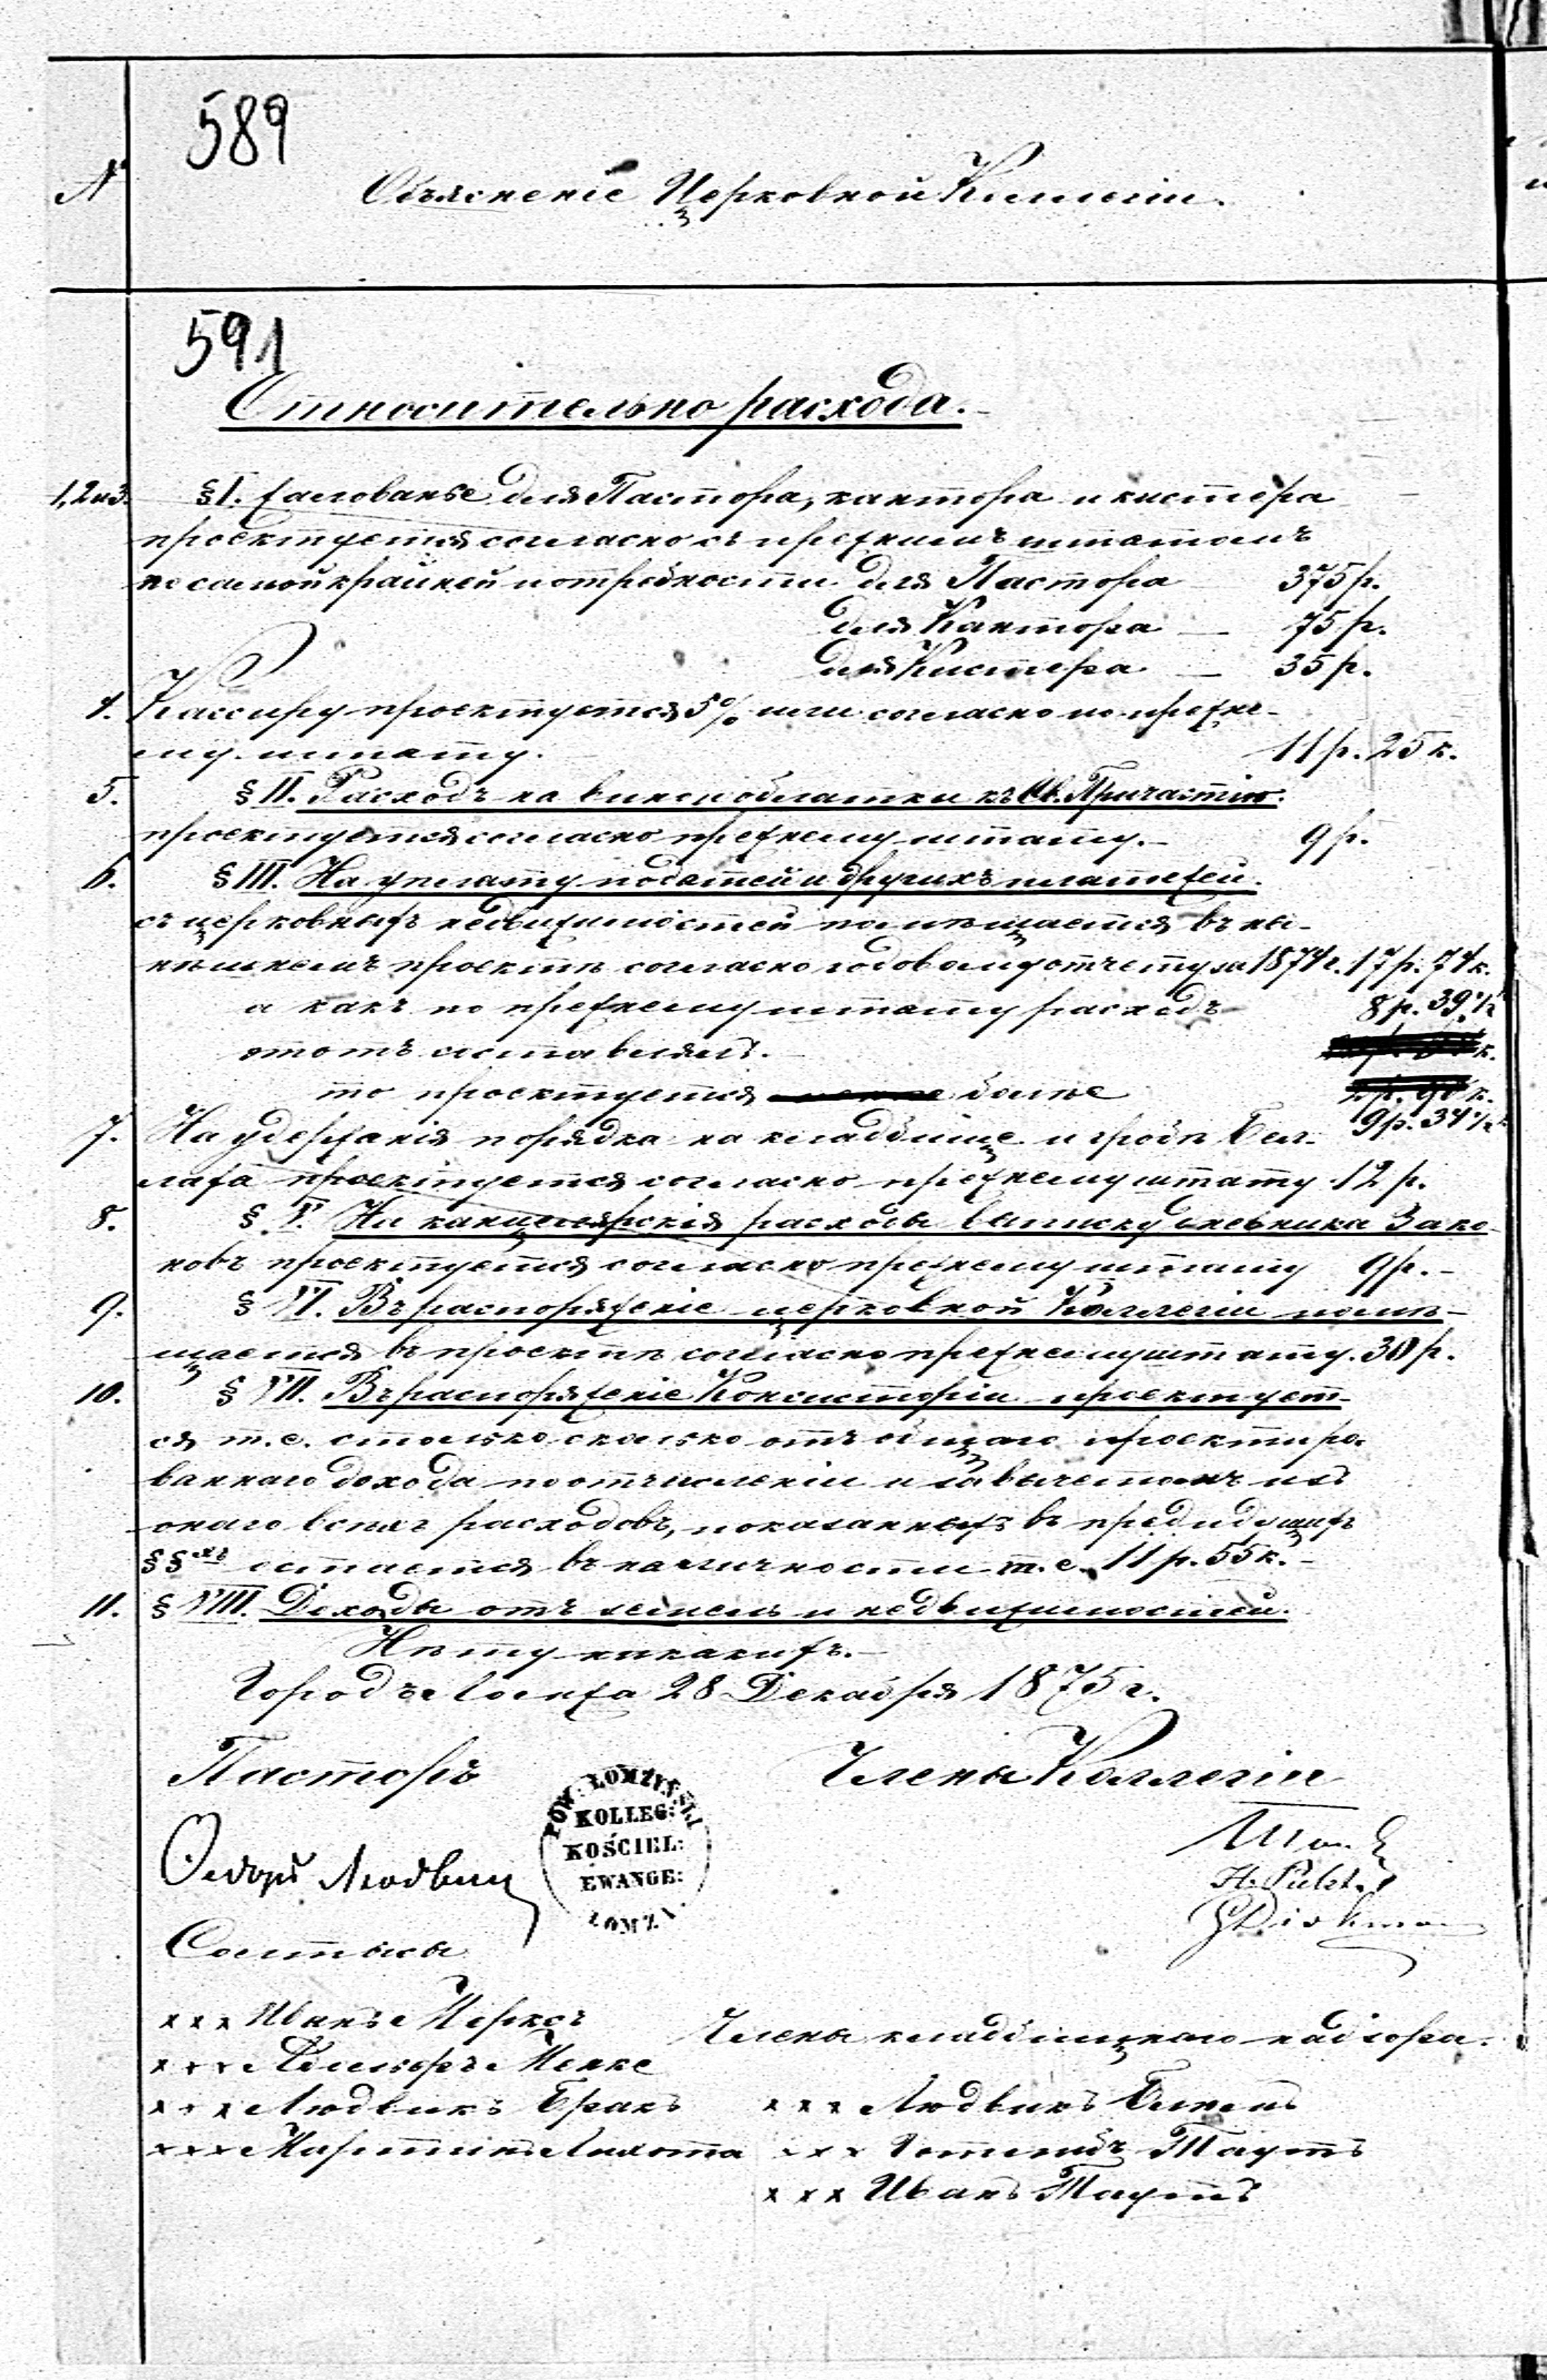 589
№ Объясненіе Церковной Коллегіи.
591
Относительно расхода.
1, 2 и 3. § I. Жалованье для Пастора, кантора и кистера
проектуется согласно съ прежнимъ штатомъ
по самой крайней потребности для Пастора 375 р.
для Кантора — 75 р.
для Кистера — 35 р.
4. Кассиру проектуется 5% или согласно по прежне-
му штату. 11 р. 25 к.
5. § II. Расходъ на вино и облатки къ Св. Причастію.
проектуется согласно прежнему штату. — 9 р.
6. § III. На уплату податей и другихъ платежей.
съ церковныхъ недвижимостей помѣщается въ ны-
нѣшнемъ проектѣ согласно годовому отчету за 1874 г. 17 р. 74 к.
а какъ по прежнему штату расходъ 8 р. 39 ½
этотъ составлялъ. к.
то проектуется болѣе к.
9 р. 34 ½ к
7. На удержанія порядка на кладбище и гробѣ Бел-
лаха проектуется согласно прежнему штату 12 р.
8. § V. На канцелярскія расходы выписку дневника Зако-
новъ проектуется согласно прежнему штату 9 р. —
9. § VI. Въ распоряженіе церковной Коллегіи помѣ-
щается въ проектѣ согласно прежнему штату. 30 р.
10. § VII. Въ распоряженіе Консисторіи проектует-
ся т. е. столько сколько отъ общаго проектиро-
ваннаго дохода по отчисленіи и за вычетомъ изъ
онаго всѣхъ расходовъ, показанныхъ въ предидущихъ
§§ хъ остается въ наличности т. е. 11 р. 55 к. —
11. § VIII. Доходы отъ земель и недвижимостей.
Нѣту никакихъ. —
Городъ Ломжа 28 Декабря 1875 г.
Пасторъ Члены Коллегіи
POW: ŁOMZYŃSKI
KOLLEG:
KOŚCIEL:
EWANGE:
ŁOMZA
Ѳедоръ Людвиг
Солтысы
xxx Иванъ Меркъ Члены кладбищнаго надзора.
xxx Менке
xxx Людвикъ Бракъ xxx Людвикъ
xxx Мартинъ Лихота xxx Готлибъ Таутъ
xxx Иванъ Таутъ